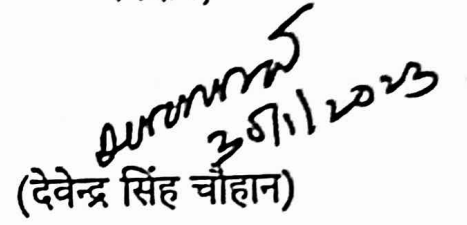 30/1/2023
(देवेन्द्र सिंह चौहान)